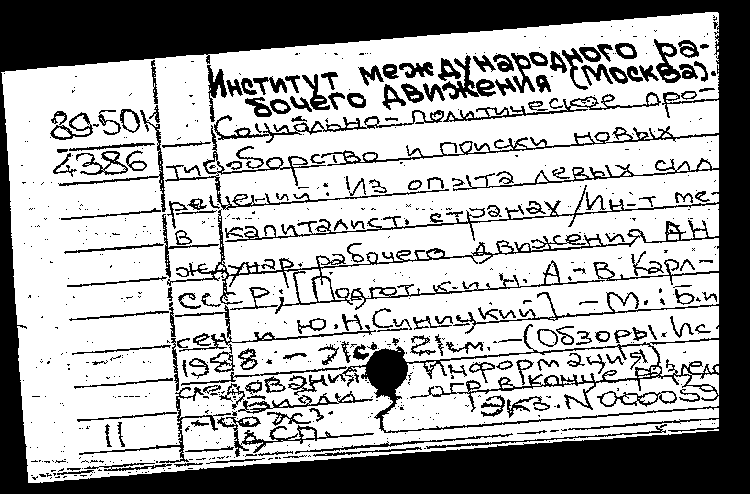 Институт международного ра-
бочего движения (Москва).
89-50К
4386
Социально-политическое про-
тивоборство и поиски новых
решений: Из опыта левых сил
в капиталист. странах / Ин-т ме-
ждунар. рабочего движения АН
СССР; [Подгот. к.и.н. А.-В. Карл-
сен и Ю.Н. Синицкий]. - М.: Б.и
1988. - 71с.; 21см. - (Обзоры. Ис-
следования. Информация)
огр в конце раздело
100 экз. Экз. N 000059
ДСП.
11